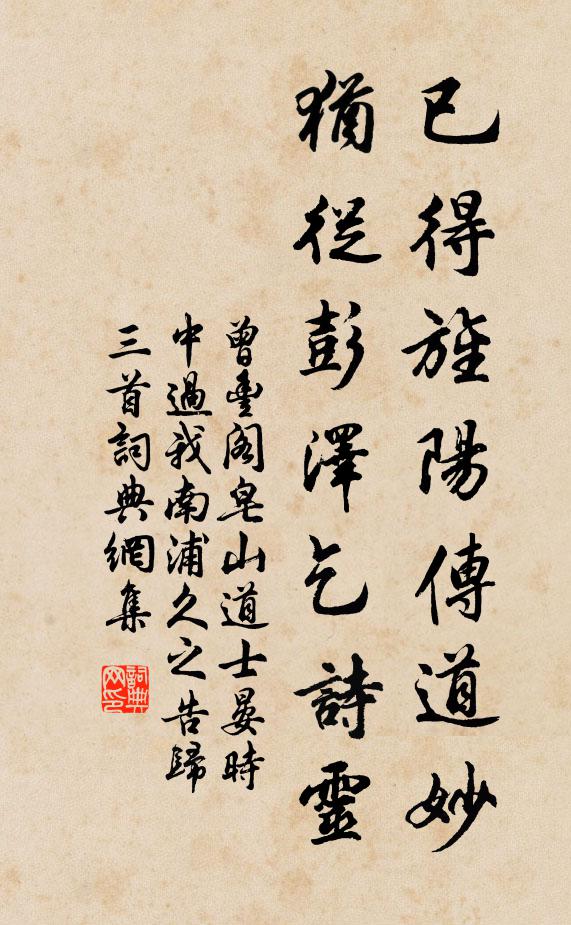 已得旌陽傳道妙
猶從彭澤乞詩靈
曾豐閣皂山道士晏時
中過我南浦久之告歸
三首詞典網集
詞典网印